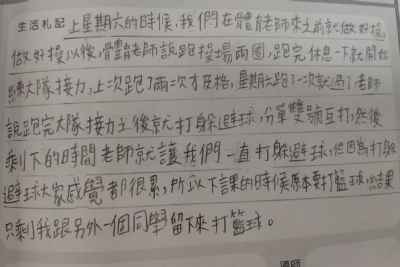 生活札記 上星期六的時候,我們在體能老師來之前就做好操
做好操以後,體能老師說跑操場兩圈,跑完休息一下就開始
練大隊接力,上次跑了兩次才及格,星期六跑了一次就過了老師
說跑完大隊接力之後就打躲避球,分單雙號互打,然後
剩下的時間老師就讓我們一直打躲避球,但因為打躲
避球大家感覺都很累,所以下課的時候原本要打籃球,結果
只剩我跟另外一個同學留下來打籃球。
導師